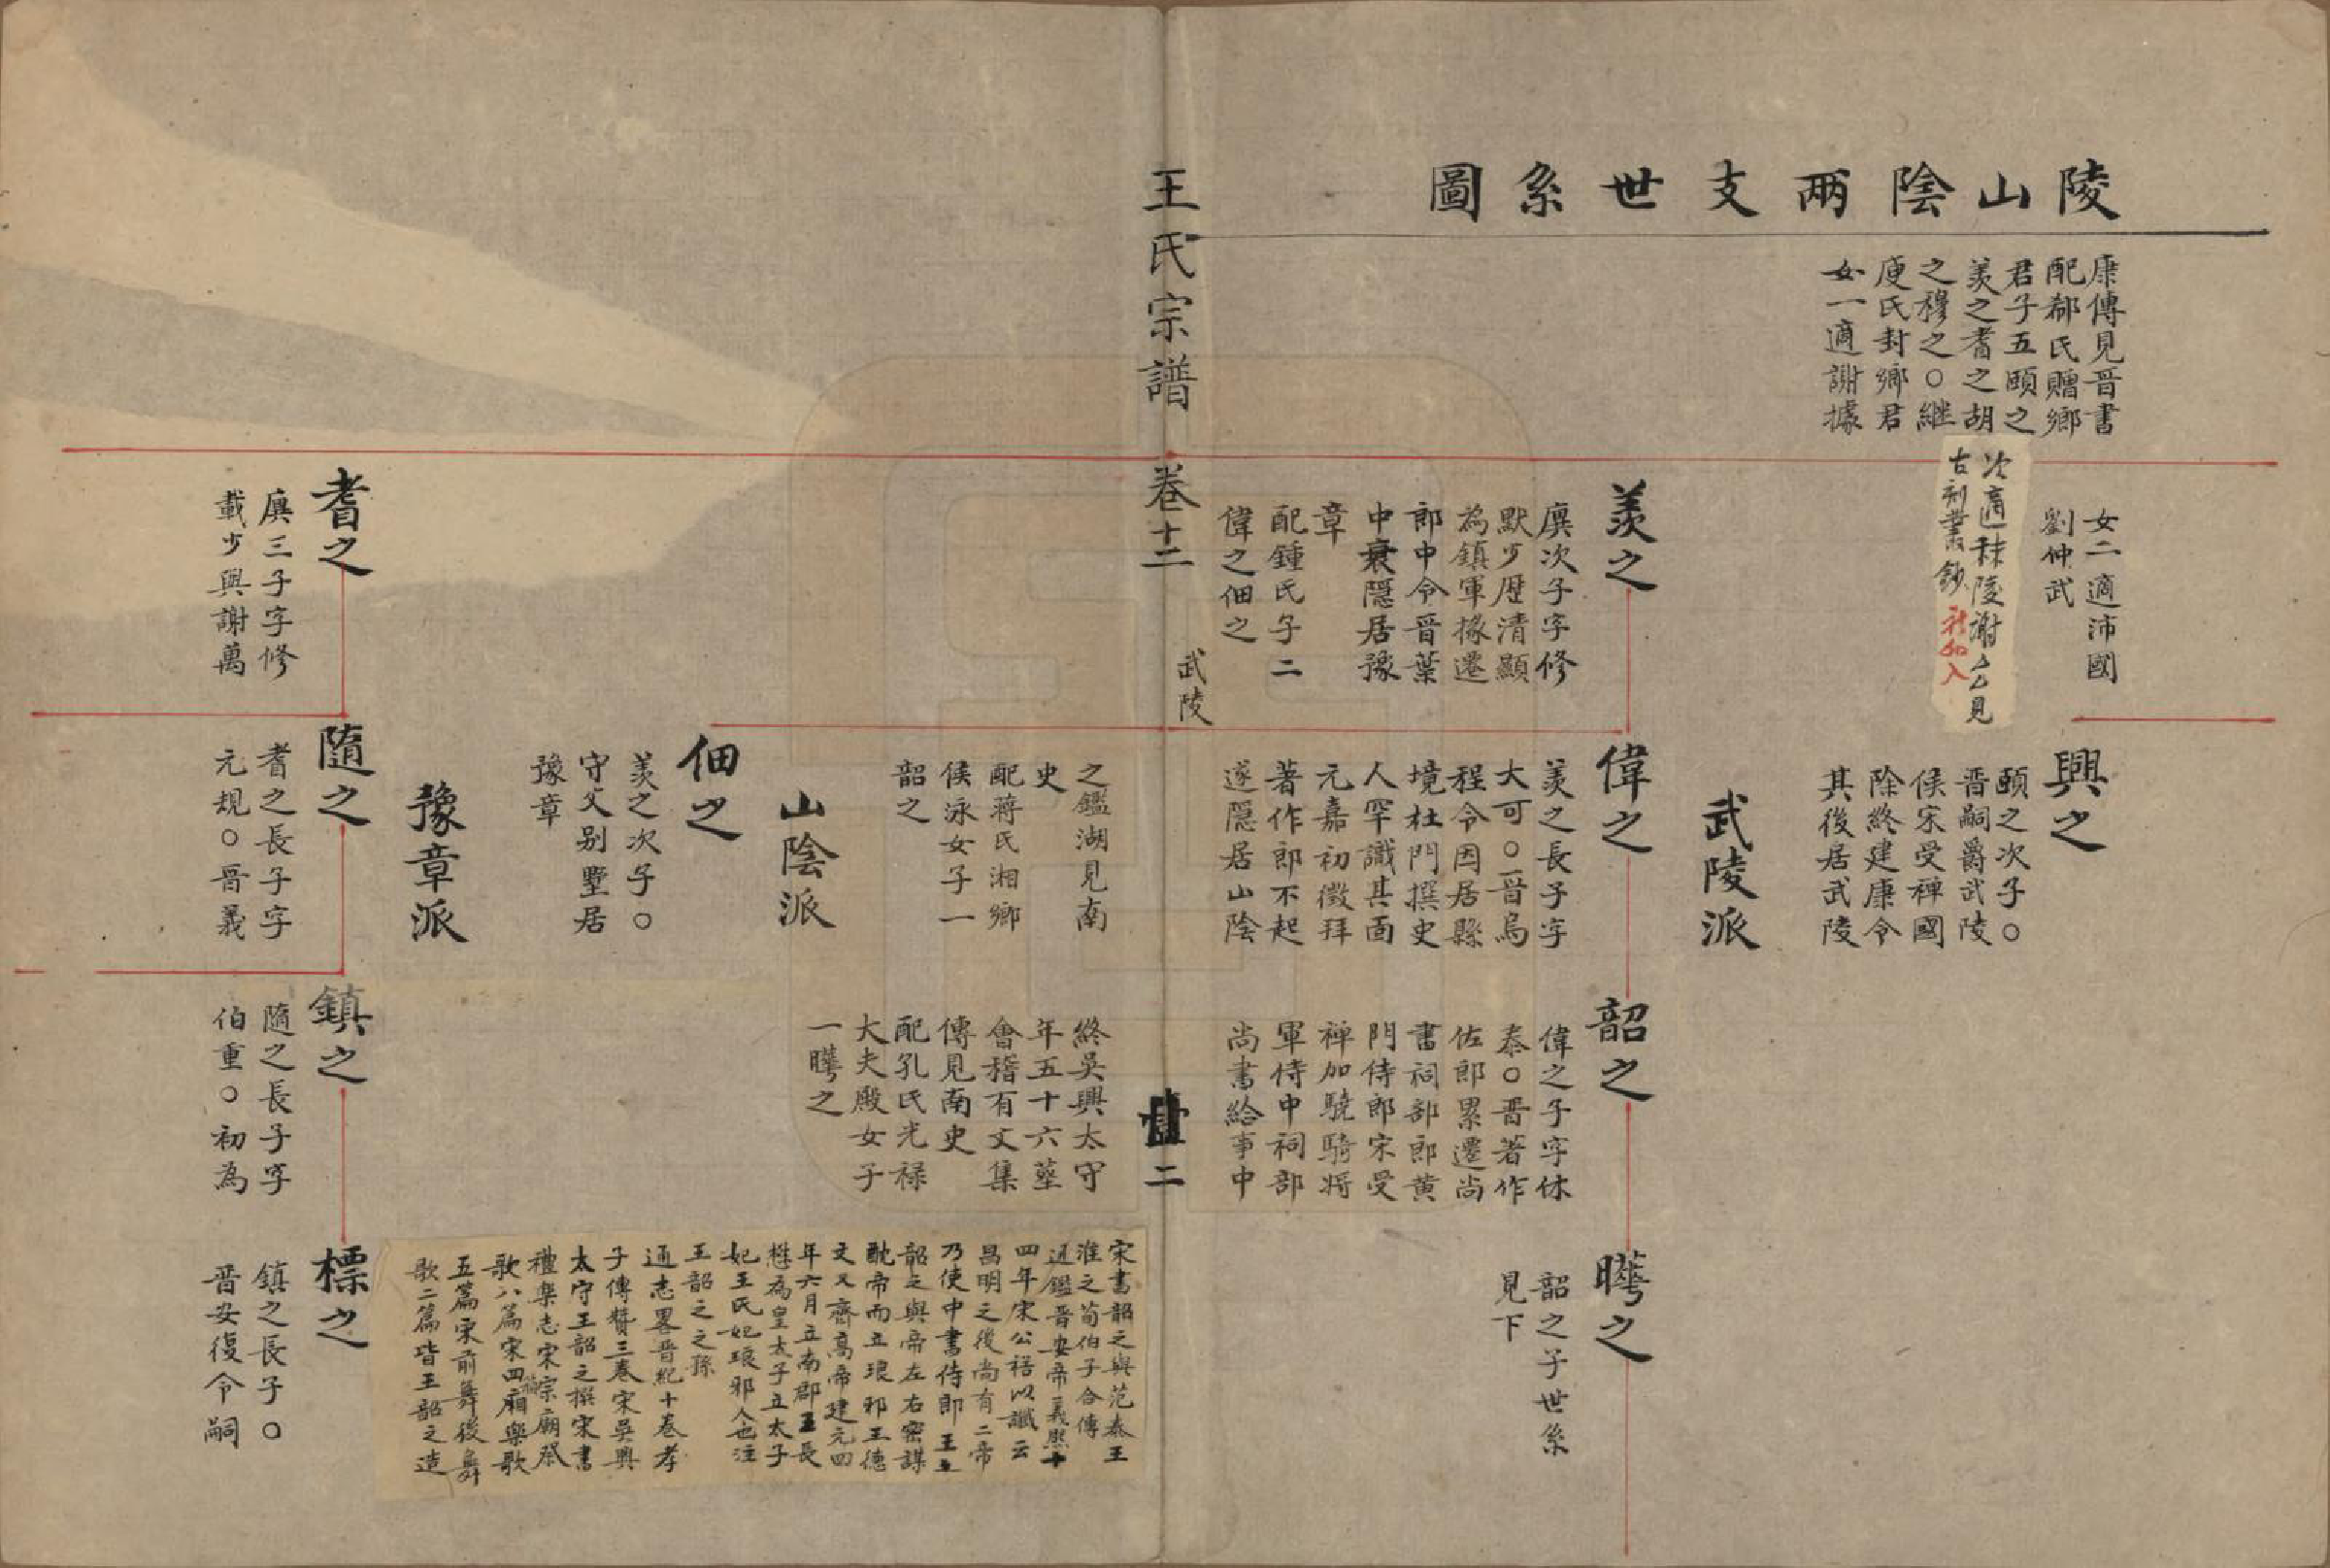 陵山陰兩支世系圖
康傳見晉書
配郗氏贈鄉
君子五頤之
羡之耆之胡
之穆之〇継
庾氏封鄉君
女一適謝據
女二適沛國
劉仲武
次適秣陵謝厶厶見
古刻叢鈔
補入
興之
頤之次子〇
晋嗣爵武陵
侯宋受禅國
除終建康令
其後居武陵
武陵派
羡之
廙次子字修
默少歴清顯
為鎮軍掾遷
郎中令晋葉
中衰隠居豫
章
配鍾氏子二
偉之佃之
偉之
羡之長子字
大可〇晋烏
程令因居縣
境杜門撰史
人罕識其面
元嘉初徵拜
著作郎不起
遂隠居山陰
韶之
偉之子字休
泰〇晋著作
佐郎累遷尚
書祠部郎黄
門侍郎宋受
禅加驍騎将
軍侍中祠部
尚書給事中
曄之
韶之子世系
見下
王氏宗譜
卷十二
武陵
二
之鑑湖見南
史
配蒋氏湘鄉
侯泳女子一
韶之
終吳興太守
年五十六葬
會稽有文集
傳見南史
配孔氏光禄
大夫殿女子
一曄之
山陰派
佃之
羡之次子〇
守父别墅居
豫章
豫章派
宋書韶之與范泰王
淮之荀伯子合傳
通鑑晋安帝義熙十
四年宋公裕以讖云
昌明之後尚有二帝
乃使中書侍郎王
韶之與帝左右密謀
酖帝而立琅邪王德
文又齊高帝建元四
年六月立南郡王長
懋為皇太子立太子
妃王氏妃琅邪人也注
王韶之之孫
通志畧晋紀十卷孝
子傳贊三卷宋吳興
太守王韶之撰宋書
禮樂志宋宗廟祭
歌八篇宋四廂樂歌
五篇宋前舞後舞
歌二篇皆王韶之造
耆之
廙三子字修
載少與謝萬
隨之
耆之長子字
元規〇晋義
鎮之
隨之長子字
伯重〇初為
標之
鎮之長子〇
晋安復令嗣